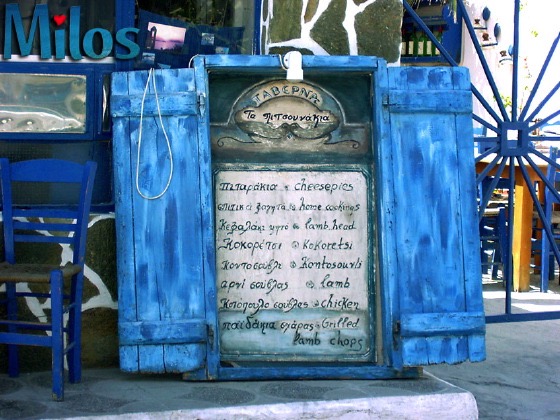 Milos
ΤΑΒΕΡΝΑ
Τα πιτσουνάκια
πιταράκια cheesepies
σπιτικά φαγητά home cookings
Κεφαλάκι ψητό lamb head
Κοκορέτσι Kokoretsi
Κοντοσούβλι Kontosouvli
αρνί σούβλας lamb
Κοτόπουλο σούβλας chicken
παϊδάκια σχάρας Grilled
lamb chops